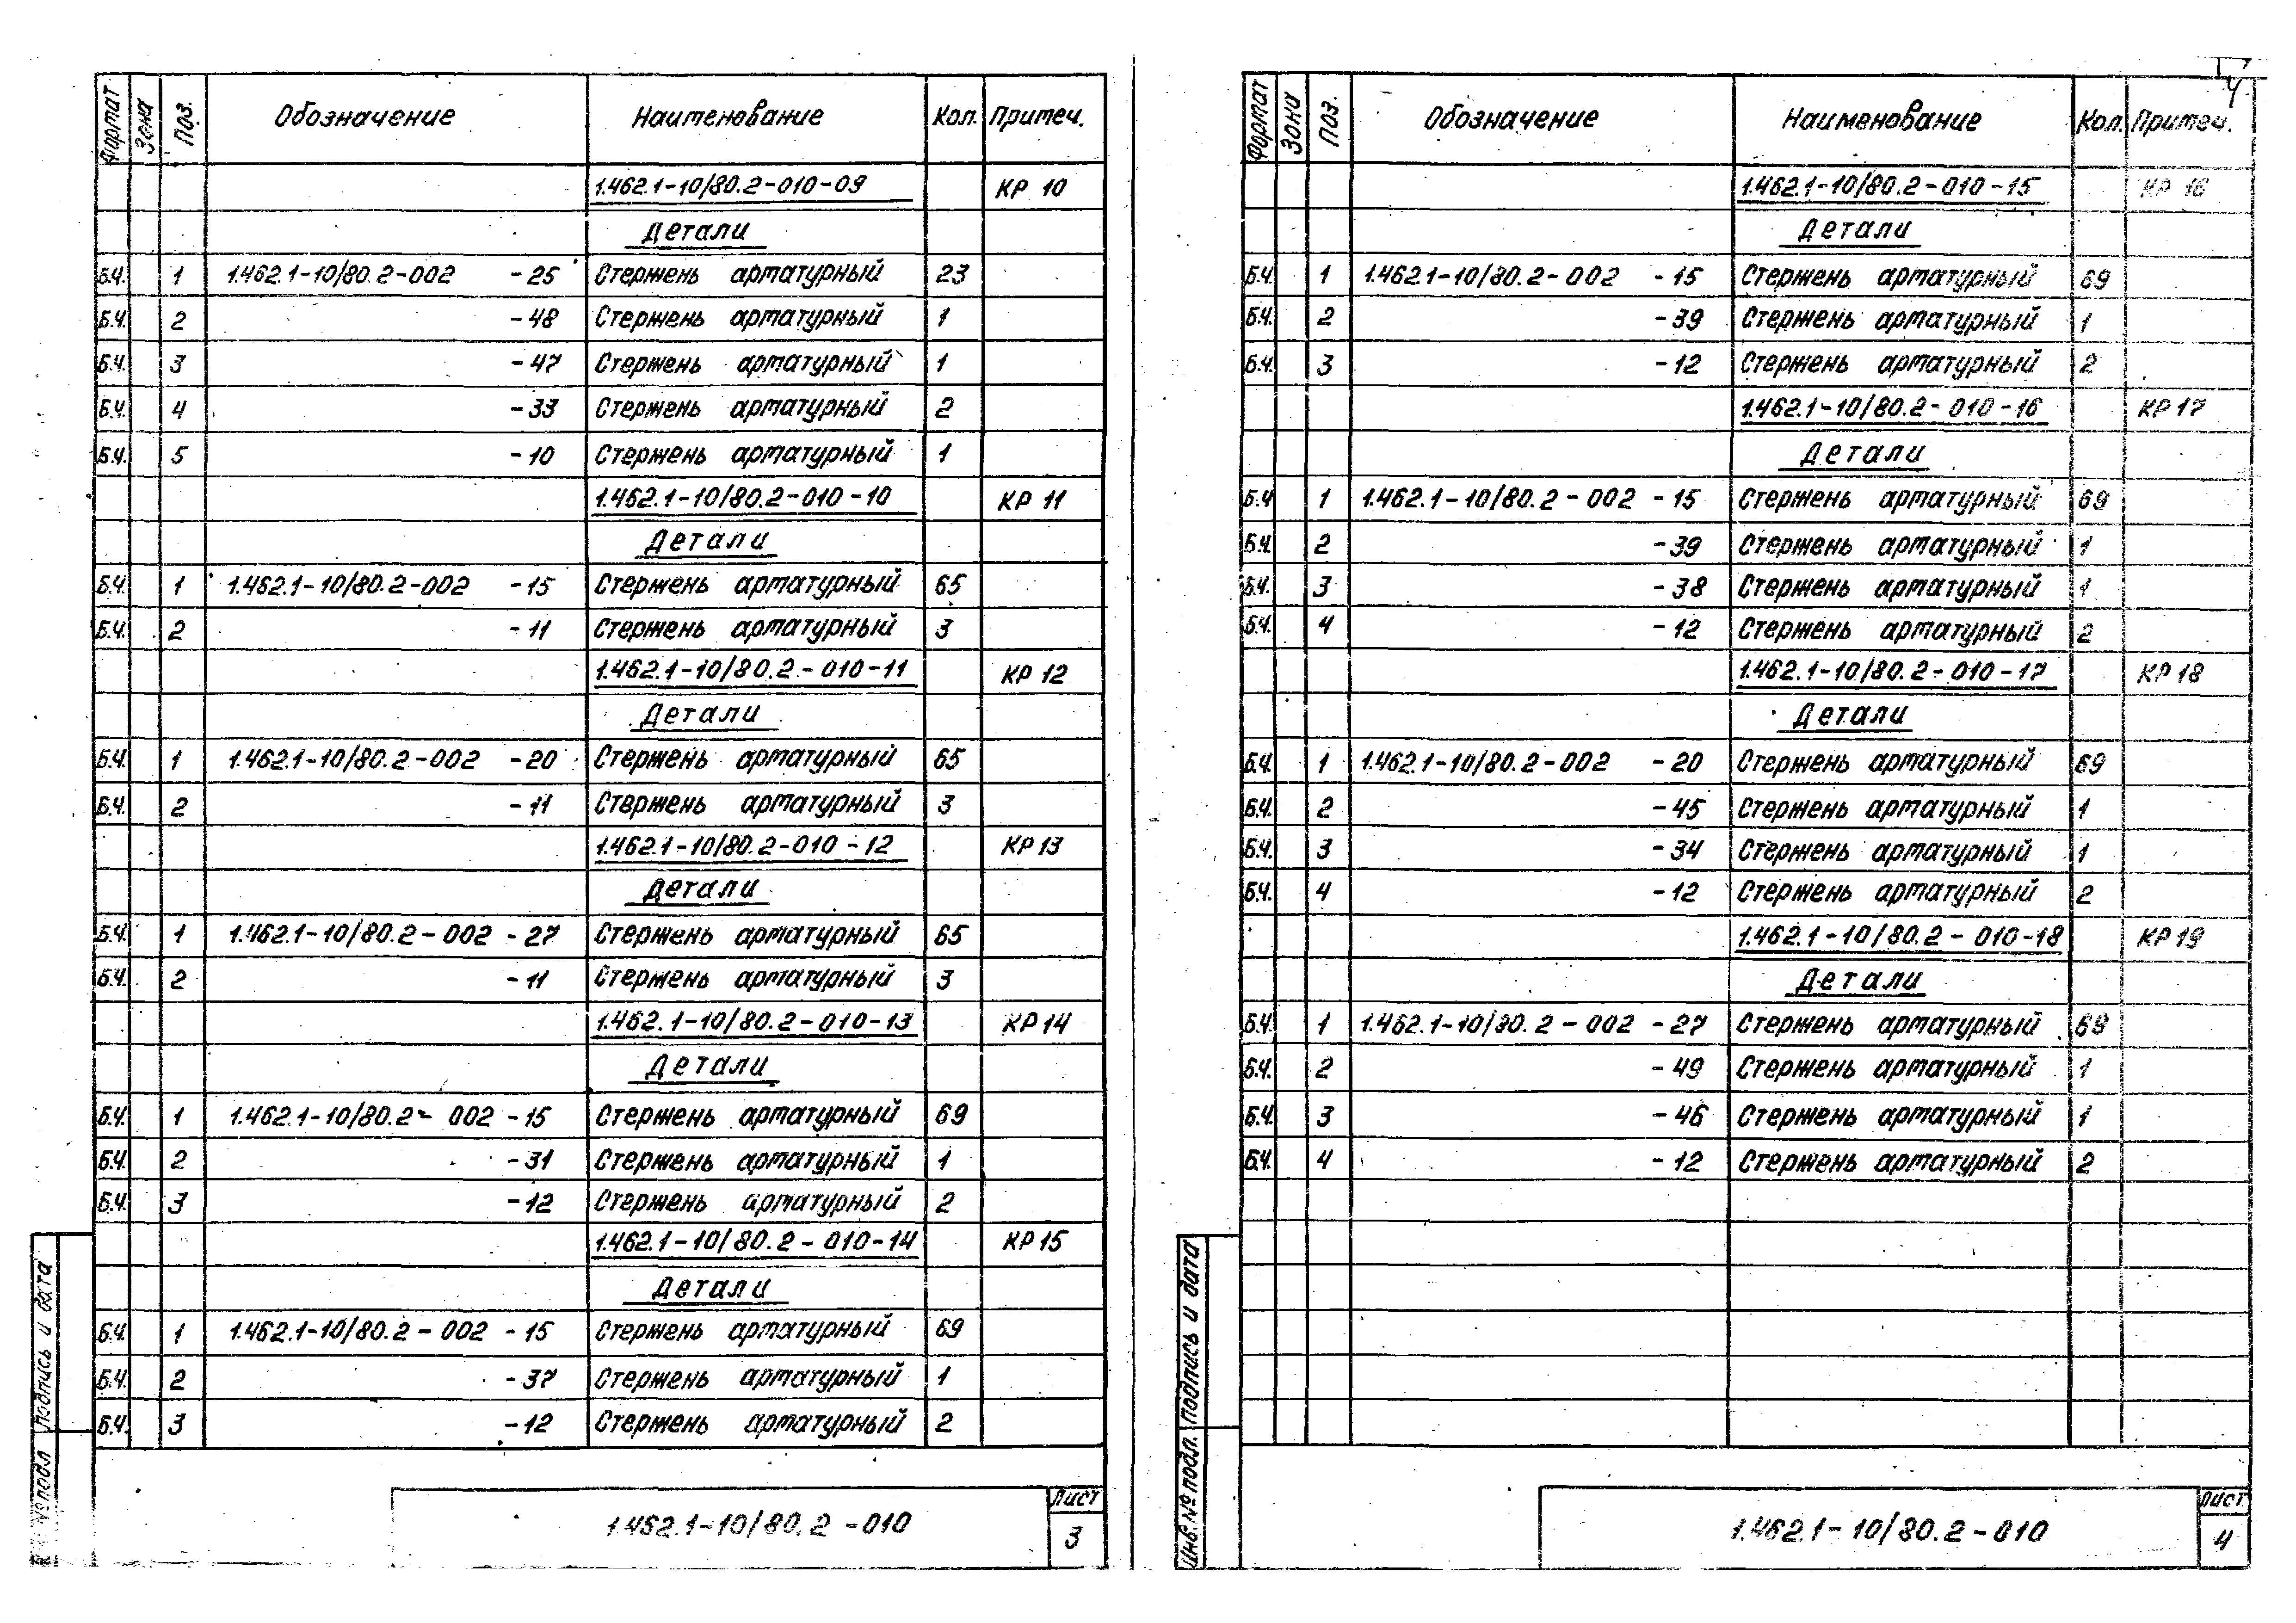 Формат Зона Поз. Обозначение Наименование Кол. Примеч.
1.462.1-10/80.2-010-09 КР 10
Детали
Б.Ч. 1 1.462.1-10/80.2-002 -25 Стержень арматурный 23
Б.Ч. 2 -48 Стержень арматурный 1
Б.Ч. 3 -47 Стержень арматурный 1
Б.Ч. 4 -33 Стержень арматурный 2
Б.Ч. 5 -10 Стержень арматурный 1
1.462.1-10/80.2-010-10 КР 11
Детали
Б.Ч. 1 1.462.1-10/80.2-002 -15 Стержень арматурный 65
Б.Ч. 2 -11 Стержень арматурный 3
1.462.1-10/80.2-010-11 КР 12
Детали
Б.Ч. 1 1.462.1-10/80.2-002 -20 Стержень арматурный 65
Б.Ч. 2 -11 Стержень арматурный 3
1.462.1-10/80.2-010-12 КР 13
Детали
Б.Ч. 1 1.462.1-10/80.2-002 -27 Стержень арматурный 65
Б.Ч. 2 -11 Стержень арматурный 3
1.462.1-10/80.2-010-13 КР 14
Детали
Б.Ч. 1 1.462.1-10/80.2-002 -15 Стержень арматурный 69
Б.Ч. 2 -31 Стержень арматурный 1
Б.Ч. 3 -12 Стержень арматурный 2
1.462.1-10/80.2-010-14 КР 15
Детали
Б.Ч. 1 1.462.1-10/80.2-002 -15 Стержень арматурный 69
Б.Ч. 2 -37 Стержень арматурный 1
Б.Ч. 3 -12 Стержень арматурный 2
№ подл подпись и дата
1.462.1-10/80.2-010
Лист
3
4
Формат Зона Поз. Обозначение Наименование Кол. Примеч.
1.462.1-10/80.2-010-15 КР 16
Детали
Б.Ч. 1 1.462.1-10/80.2-002 -15 Стержень арматурный 69
Б.Ч. 2 -39 Стержень арматурный 1
Б.Ч. 3 -12 Стержень арматурный 2
1.462.1-10/80.2-010-16 КР 17
Детали
Б.Ч 1 1.462.1-10/80.2-002 -15 Стержень арматурный 69
Б.Ч. 2 -39 Стержень арматурный 1
Б.Ч. 3 -38 Стержень арматурный 1
Б.Ч. 4 -12 Стержень арматурный 2
1.462.1-10/80.2-010-17 КР 18
Детали
Б.Ч. 1 1.462.1-10/80.2-002 -20 Стержень арматурный 69
Б.Ч. 2 -45 Стержень арматурный 1
Б.Ч. 3 -34 Стержень арматурный 1
Б.Ч. 4 -12 Стержень арматурный 2
1.462.1-10/80.2-010-18 КР 19
Детали
Б.Ч. 1 1.462.1-10/80.2-002 -27 Стержень арматурный 69
Б.Ч. 2 -49 Стержень арматурный 1
Б.Ч. 3 -46 Стержень арматурный 1
Б.Ч. 4 -12 Стержень арматурный 2
Инв. № подл. подпись и дата
1.462.1-10/80.2-010
Лист
4